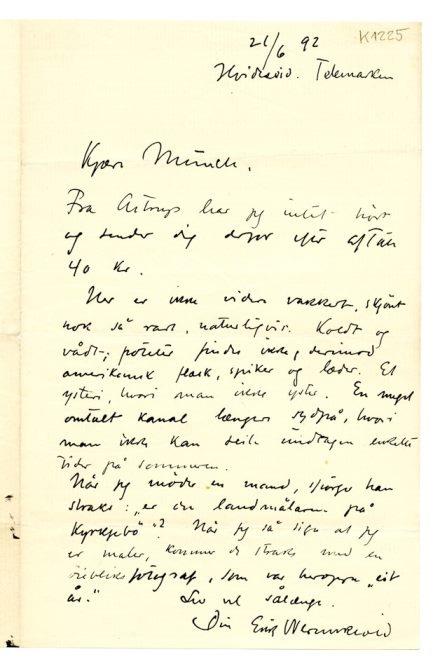 K1225
21/6 92
Hvideseid. Telemarken
Kjære Munch.
Fra Astrup har jeg intet hört
og sender dig derfor efter aftale
40 Kr.
Her er ikke videre vakkert, skjönt
nok så rart, naturligvis. Koldt og
vådt; poteter findes ikke, derimod
amerikansk flesk, spiker og læder. Et
ysteri, hvori man ikke yster. En meget
omtalt kanal længere sydpå, hvori
man ikke kan seile undtagen enkelte
tider på sommeren.
Når jeg möder en mand, spörger han
straks: „er du landmålaren på
Kyrkjebö"? Når jeg så siger at jeg
er maler, kommer de straks med en
fotograf, som var heroppe „eit
år." Lev vel sålænge.
Din Erik Werenskiold